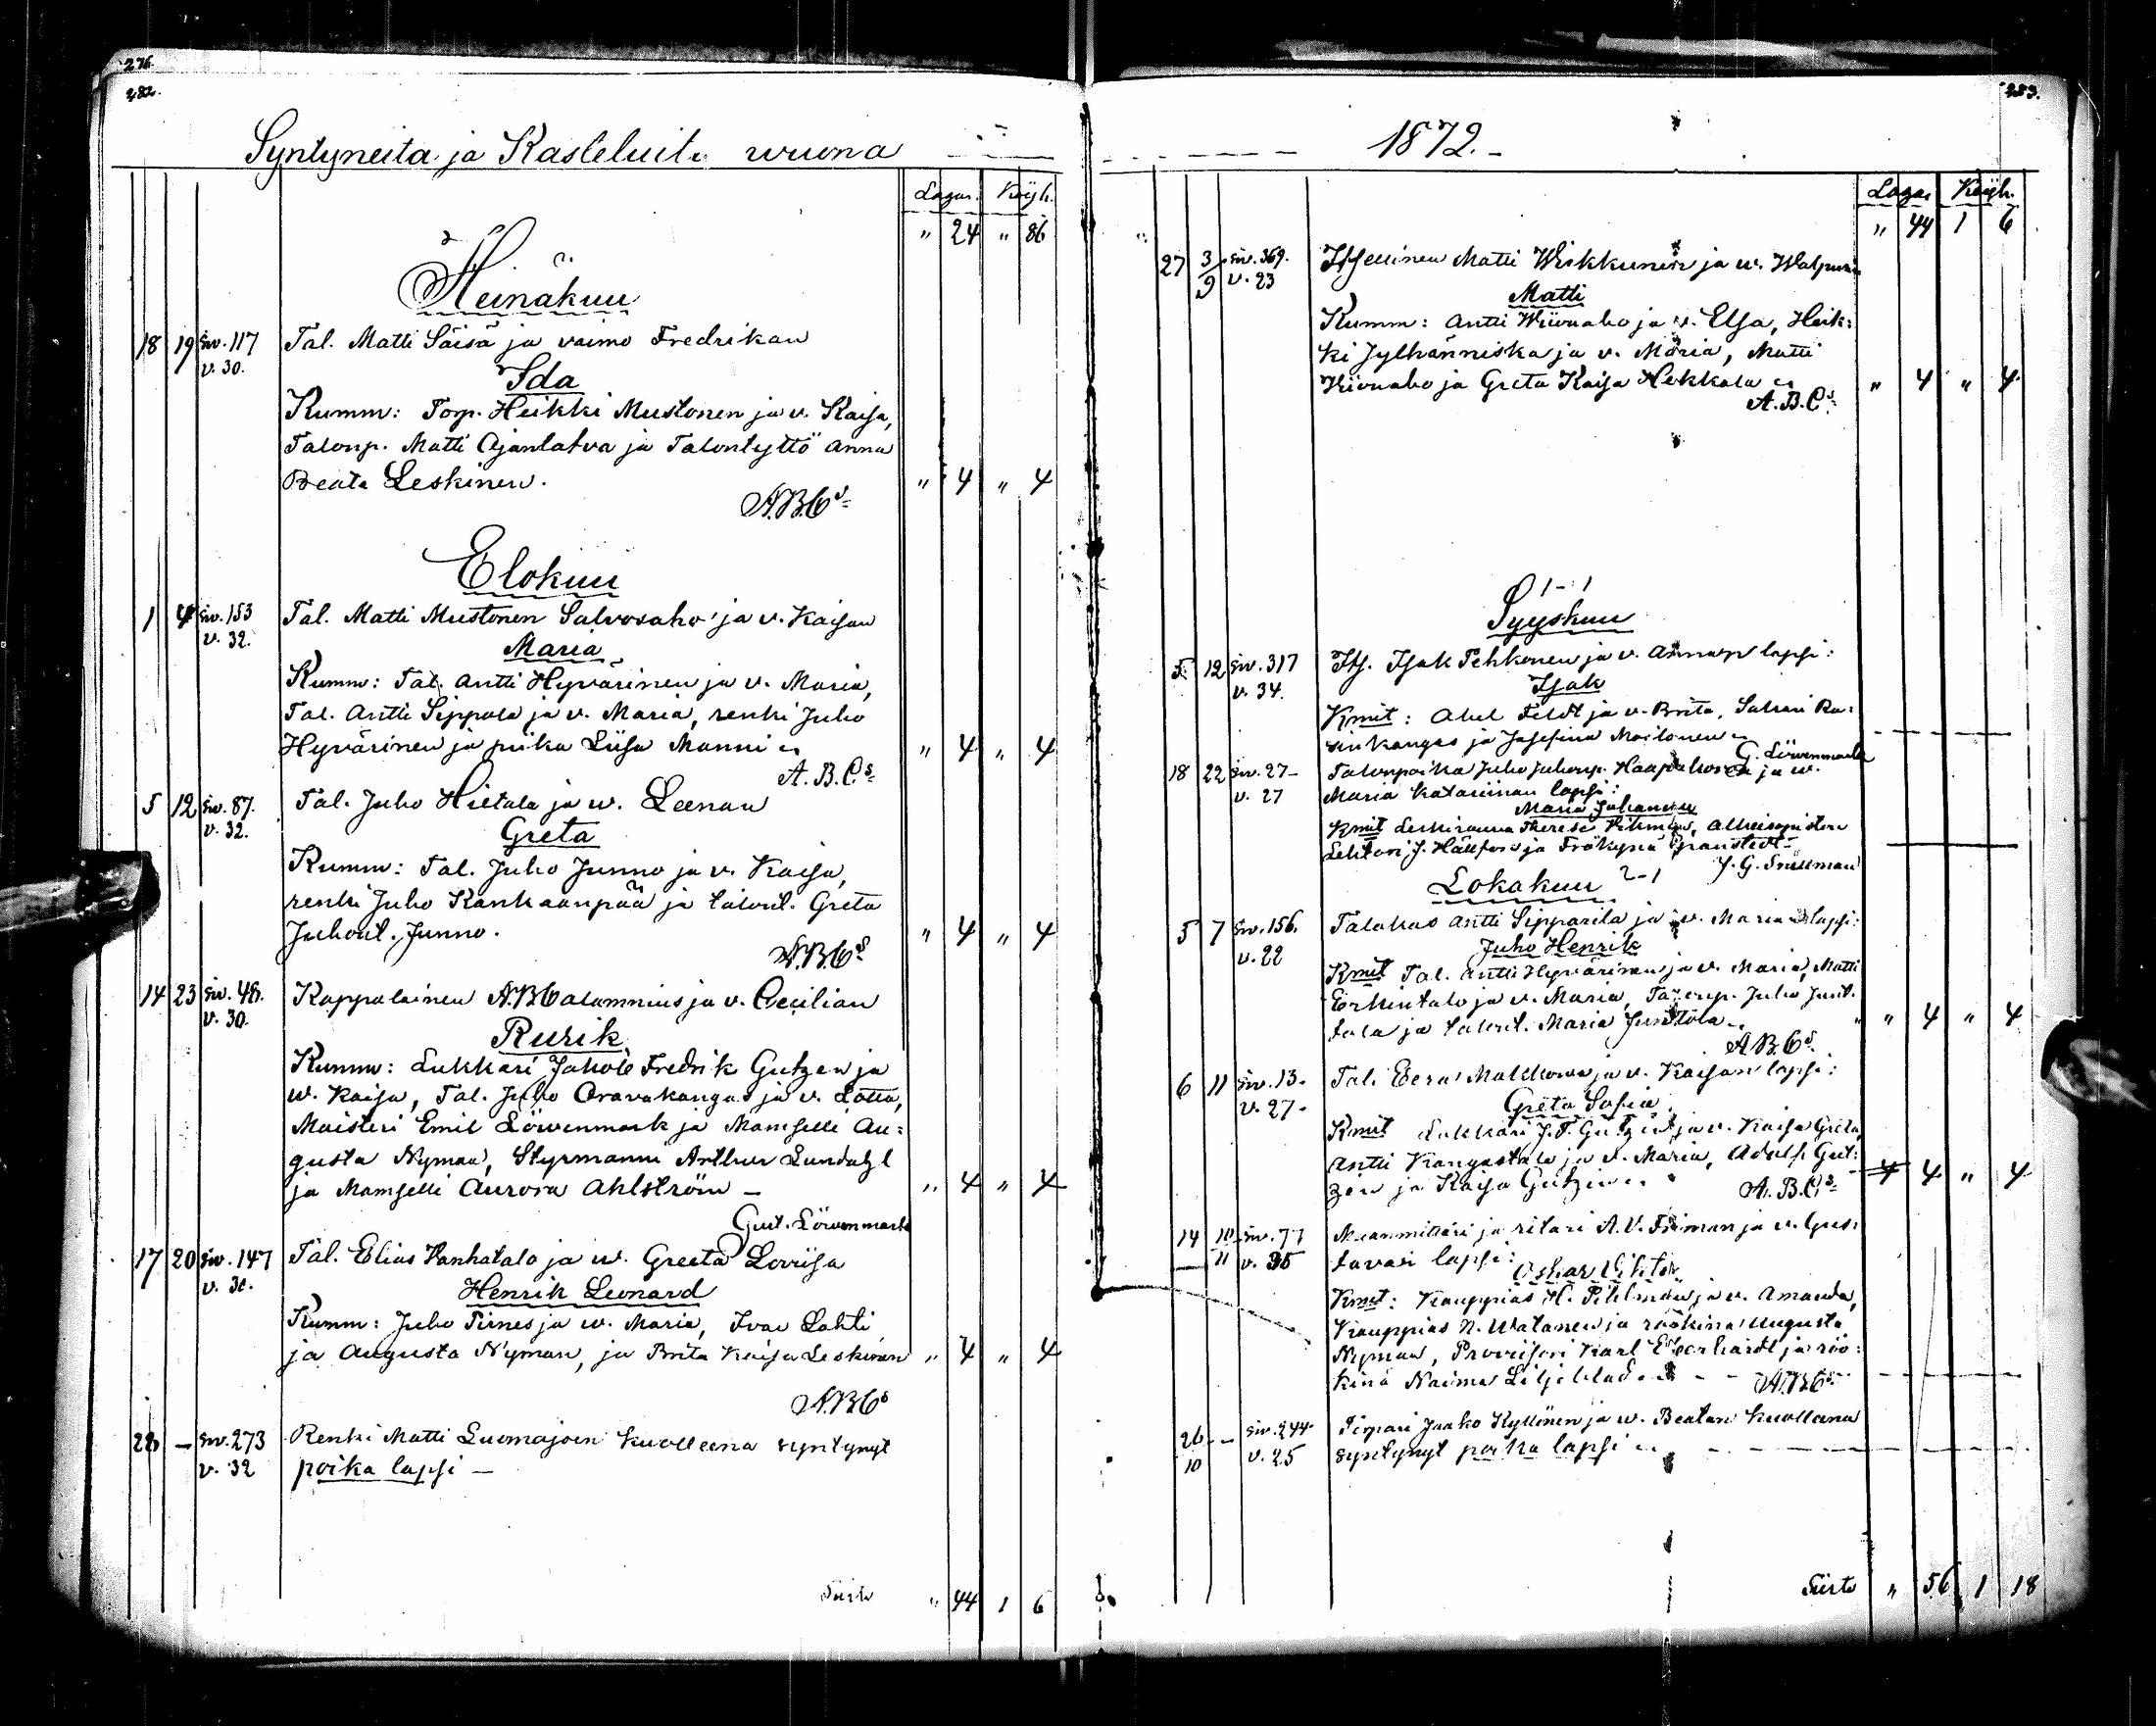 276.
282.
Syntyneitä ja Kasteluita wuona
Lazar. Köyh.
" 24 " 86
Heinäkuu
18 19 siv. 117 Tal. Matti Säisä ja vaimo Fredrikan
v. 30.
Ida
Kumm: Torp. Heikki Mustonen ja v. Kaisa,
Talonp. Matti Ajantatva ja Talontyttö Anna
Beata Leskinen. " 4 " 4
A.B.Cs
Elokuu
1 4 siv. 153 Tal. Matti Mustonen Salvosaho ja v. Kaisan
v. 32.
Maria
Kumm: Tal. Antti Hyvärinen ja v. Maria,
Tal. Antti Sippola ja v. Maria, renki Juho
Hyvärinen ja piika Liisa Manni " 4 " 4
A.B.Cs
5 12 siv. 87. Tal. Juho Hietala ja w. Leenan
v. 32.
Greta
Kumm: Tal. Juho Junno ja v. Kaisa,
renki Juho Kankaanpää ja talont. Greta
Juhont. Junno. " 4 " 4
A.B.Cs
14 23 siv. 48. Kappalainen A.B. Calamnius ja v. Cecilian
v. 30.
Rurik
Kumm: Lukkari Jakob Fredrik Gutzen ja
w. Kaisa, Tal. Juho Oravakangas ja v. Lotta,
Maisteri Emil Löwenmark ja Mamselli Au=
gusta Nyman, Styrmanni Arthur Lundahl
ja Mamselli Aurora Ahlström – " 4 " 4
Gust. Löwenmark
17 20 siv. 147 Tal. Elias Vanhatalo ja w. Greeta Lovisa
v. 30.
Henrik Leonard
Kumm: Juho Pirnes ja w. Maria, Ivar Lahti
ja Augusta Nyman, ja Brita Kaisa Leskinen " 4 " 4
A.B.Cs
28 – siv. 273 Renki Matti Luomajoen kuolleena syntynyt
v. 32 poika lapsi –
Siirto " 44 1 6
283.
1872.–
Lazar. Köyh.
" 44 1 6
27 3/9 siv. 369. Itsellinen Matti Wiskkunen ja w. Walpuri
v. 23
Matti
Kumm: Antti Kiwnaho ja v. Elsa, Heik=
ki Jylhänniska ja v. Maria, Matti
Kiwnaho ja Greta Kaisa Hekkala " 4 " 4
A.B.Cs
1-1
Syyskuu
5 12 siv. 317 Its. Isak Pehkonen ja v. Annan lapsi:
v. 34.
Isak
Kmit: Abel Feldt ja v. Brita, Sakari Ra=
sinkangas ja Josefina Moilonen
G. Löwenmark
18 22 siv. 27– Talonpoika Juho Juhonp. Haapakoren ja w.
v. 27 Maria Katariinan lapsi:
Maria Johanna
Kmit Leskirouva Therese
Lehtori J. Hällfors ja Frökynä
J. G. Snellman
Lokakuu 2-1
5 7 siv. 156. Talokas Antti Sipparila ja v. Marian lapsi:
v. 22
Juho Henrik
Kmit Tal. Antti Hyvärinen ja v. Maria, Matti
Eerkintalo ja v. Maria, Talonp. Juho Junt=
tola ja talont. Maria Junttola " 4 " 4
A.B.Cs
6 11 siv. 13. Tal. Eera Malkkowa ja v. Kaisan lapsi:
v. 27.
Greta Sofia
Kmit Lukkari J.F. Gutzen ja v. Kaisa Greta,
Antti Kangastalo ja v. Maria, Adolf Gut=
zen ja Kaisa Gutzen 4 " 4
A.B.Cs
14 10/11 siv. 77 Maanmittari ja ritari A.V. Friman ja v. Gus=
v. 35 tavan lapsi:
Oskar Viktor
Kmit: Kauppias H. Pihlman ja v. Amanda,
Kauppias N. Watanen ja röökina Augusta
Nyman, Proviisori Karl Eberhardt ja röö=
kina Naima Liljeblad
A.B.Cs
26/10 – siv. 244. Pippari Jaako Kyllönen ja w. Beatan kuolleena
v. 25 syntynyt poika lapsi
Siirto " 56 1 18